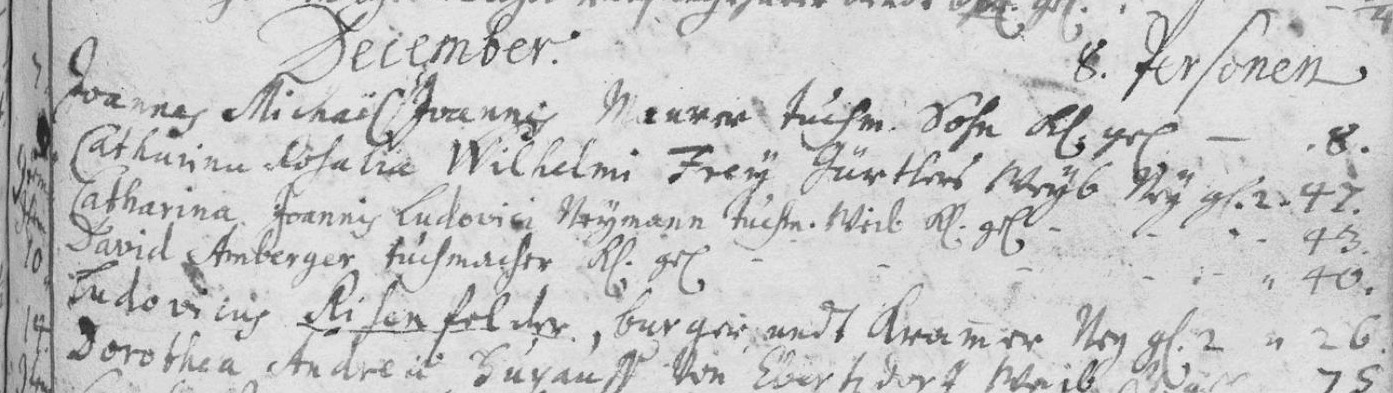 December.
8. Personen
7 Joannes Michaël Joannis Maurer tuchm. Sohn Kl. gel — . 8.
Catharina Rosalia Wilhelmi Frey Gürtlers Weyb Ney gl. 2. 47.
Catharina Joannis Ludovici Neymann tuchm. Weib Kl. gel - - - 43.
10 David Amberger tuchmacher Kl. gel - - - " 40.
14 Ludovicus Risenfelder, burger undt Kramer Ney gl. 2 " 26.
Dorothea Andreä von Ebersdorf Weib 75